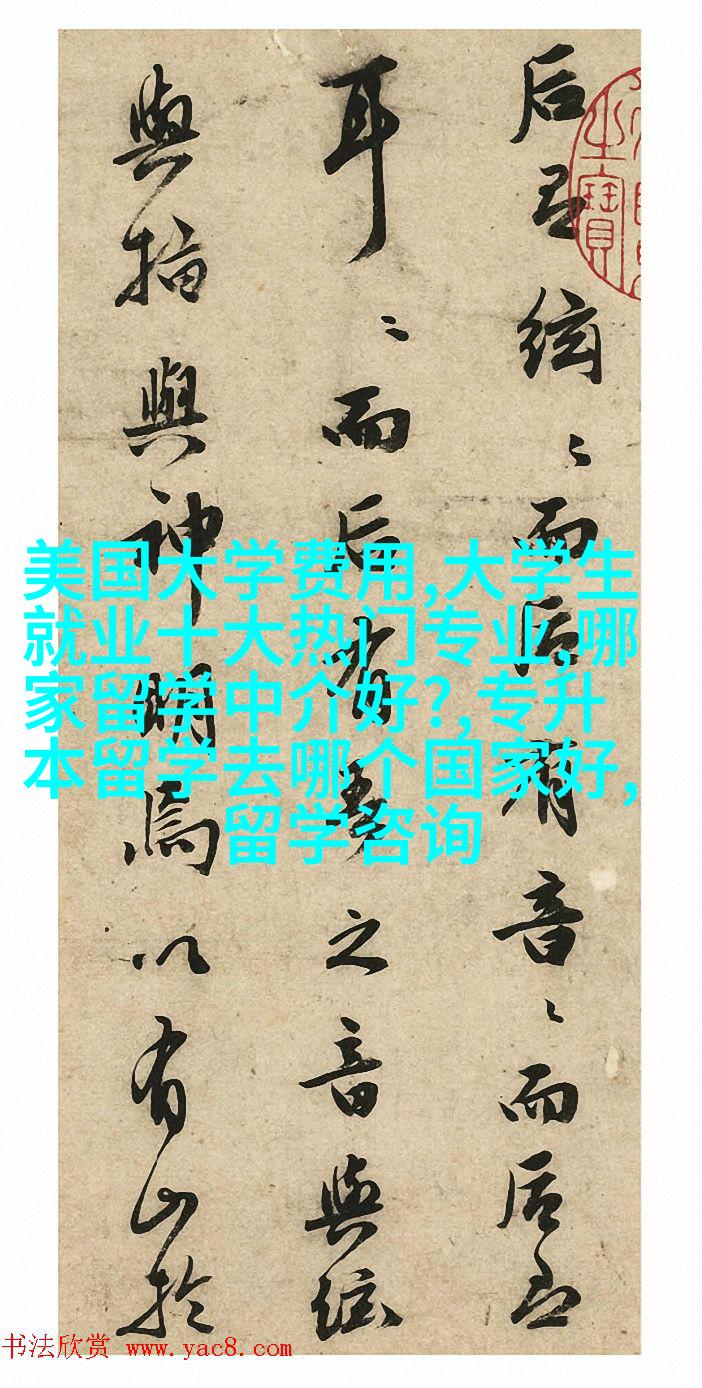 后絃〻而后有音〻而后
耳〻而后有琴之音與絃
與指與神明焉以有山於
美国大学费用,大学生
就业十大热门专业,哪
家留学中介好?,专升
本留学去哪个国家好,
留学咨询
书法欣赏 www.yac8.com